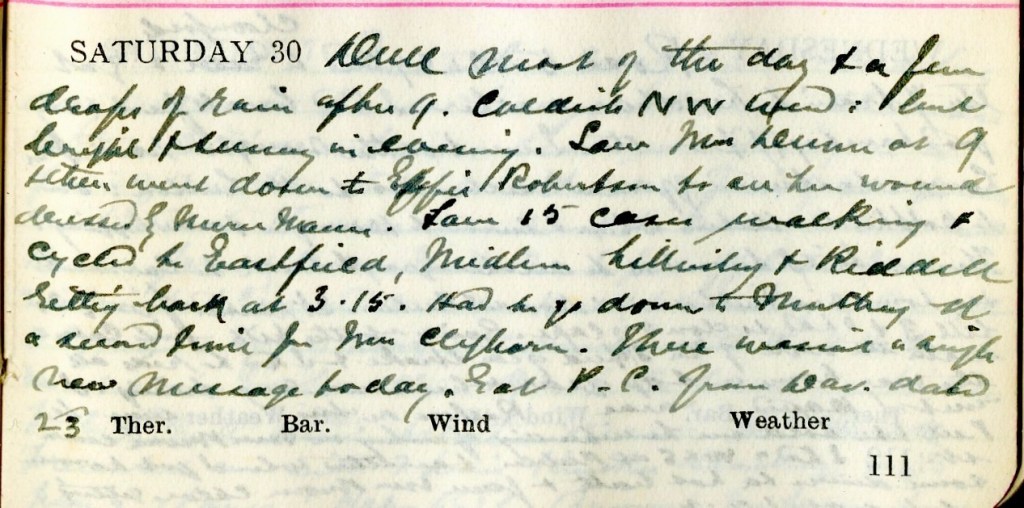 SATURDAY 30 Dull most of the day & a few
drops of rain after 9. Coldish NW wind: but
bright & sunny in evening. Saw Mrs Dunn at 9
then went down to Effie Robertson to see her wound
dressed Nurse Mann. Saw 15 cases walking &
cycled to Eastfield, Midlem Lilliesleaf & Riddell
getting back at 3.15. Had to go down to St
a second time for Mrs Clyhorn. There wasn't a single
new message today. Got P.C. from Dav. dated
23 Ther. Bar. Wind Weather
111